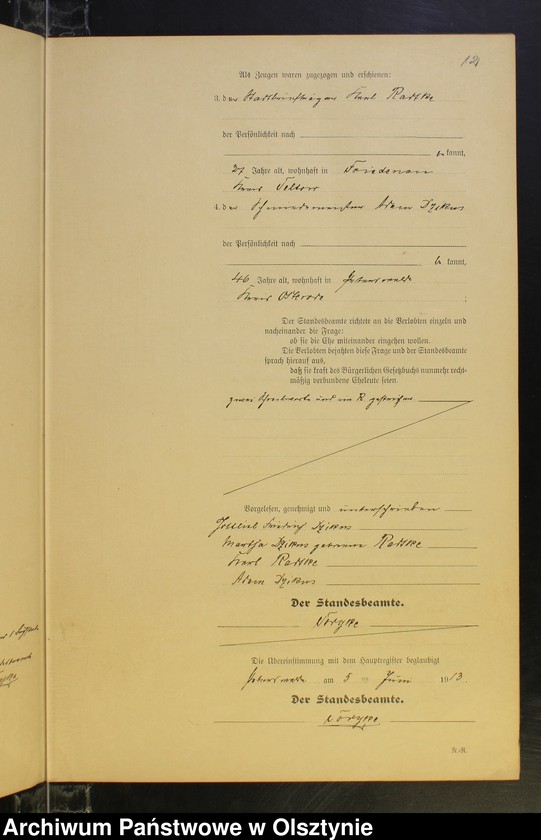 12
Als Zeugen waren zugezogen und erschienen:
3. der Stadtbriefträger Karl Radtke
der Persönlichkeit nach
be kannt,
27 Jahre alt, wohnhaft in Friedenau
Kreis Teltow
4. der Schmiedemeister Adam Dzikus
der Persönlichkeit nach
be kannt,
46 Jahre alt, wohnhaft in
Kreis Osterode ;
Der Standesbeamte richtete an die Verlobten einzeln und
nacheinander die Frage:
ob sie die Ehe miteinander eingehen wollen.
Die Verlobten bejahten diese Frage und der Standesbeamte
sprach hierauf aus,
daß sie kraft des Bürgerlichen Gesetzbuchs nunmehr recht-
mäßig verbundene Eheleute seien.
gestrichen
Vorgelesen, genehmigt und unterschrieben
Gottlieb Friedrich Dzikus
Martha Dzikus geborene Radtke
Karl Radtke
Adam Dzikus
Der Standesbeamte.
Die Übereinstimmung mit dem Hauptregister beglaubigt
am 5 ten Juni 1913.
Der Standesbeamte.
R.-R.
Archiwum Państwowe w Olsztynie